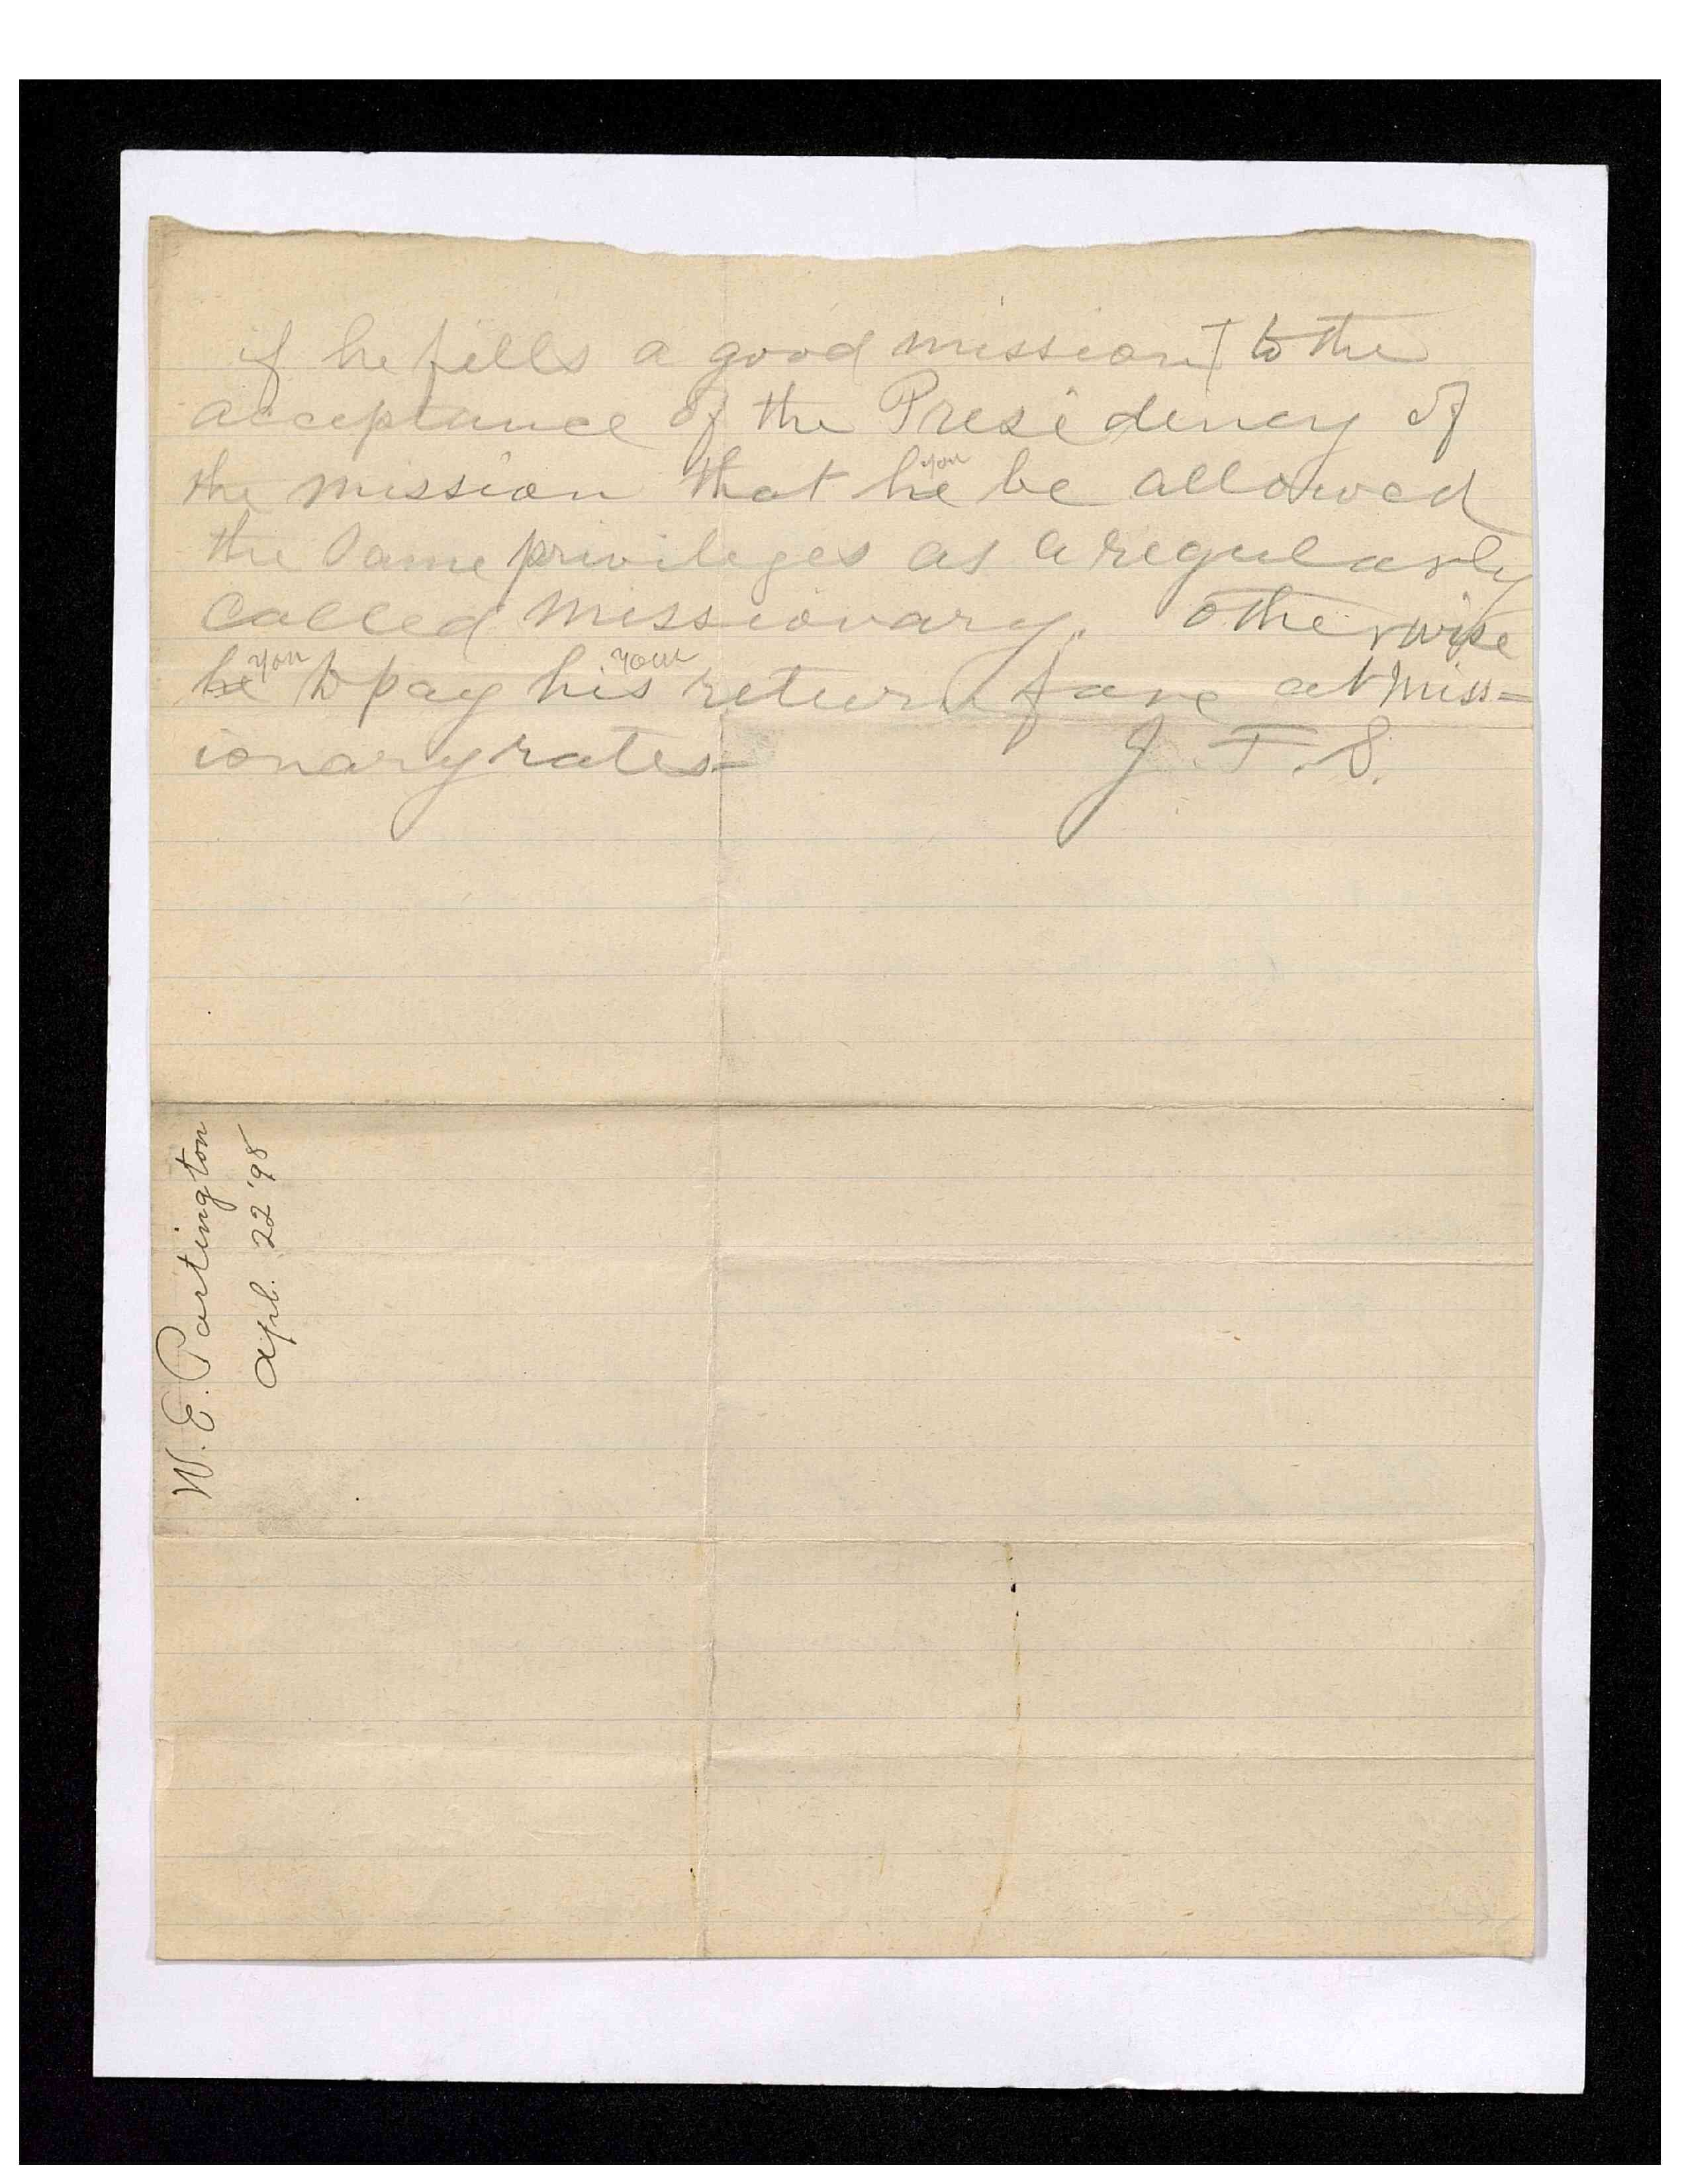 if he fills a good mission to the
acceptance of the Presidency of
you
the mission that he be allowed
the same privileges as a regularly
called missionary. otherwise
you your
he to pay his return fare at miss=
ionary rates—
J. F. S.
W. E. Partington
Apl. 22 '98